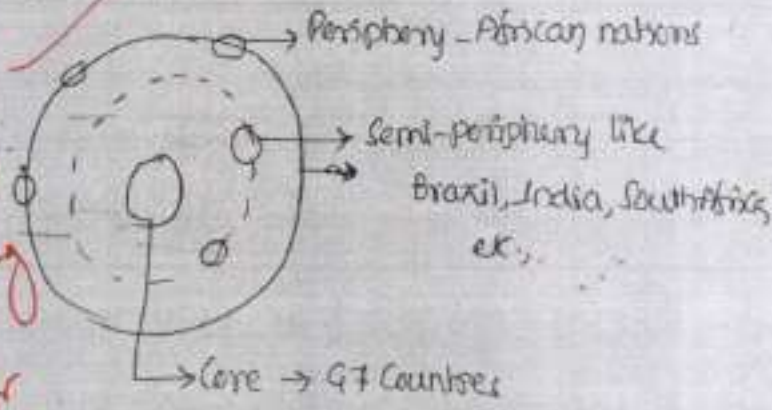 Periphery - African nations
Semi-periphery like
Brazil, India, South Africa,
etc.,
Core → G7 Countries